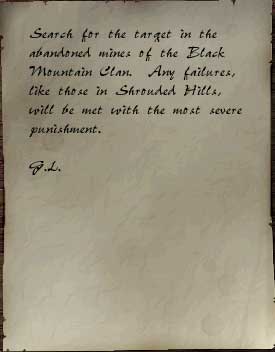 Search for the target in the
abandoned mines of the Black
Mountain Clan. Any failures,
like those in Shrouded Hills,
will be met with the most severe
punishment.
G.L.